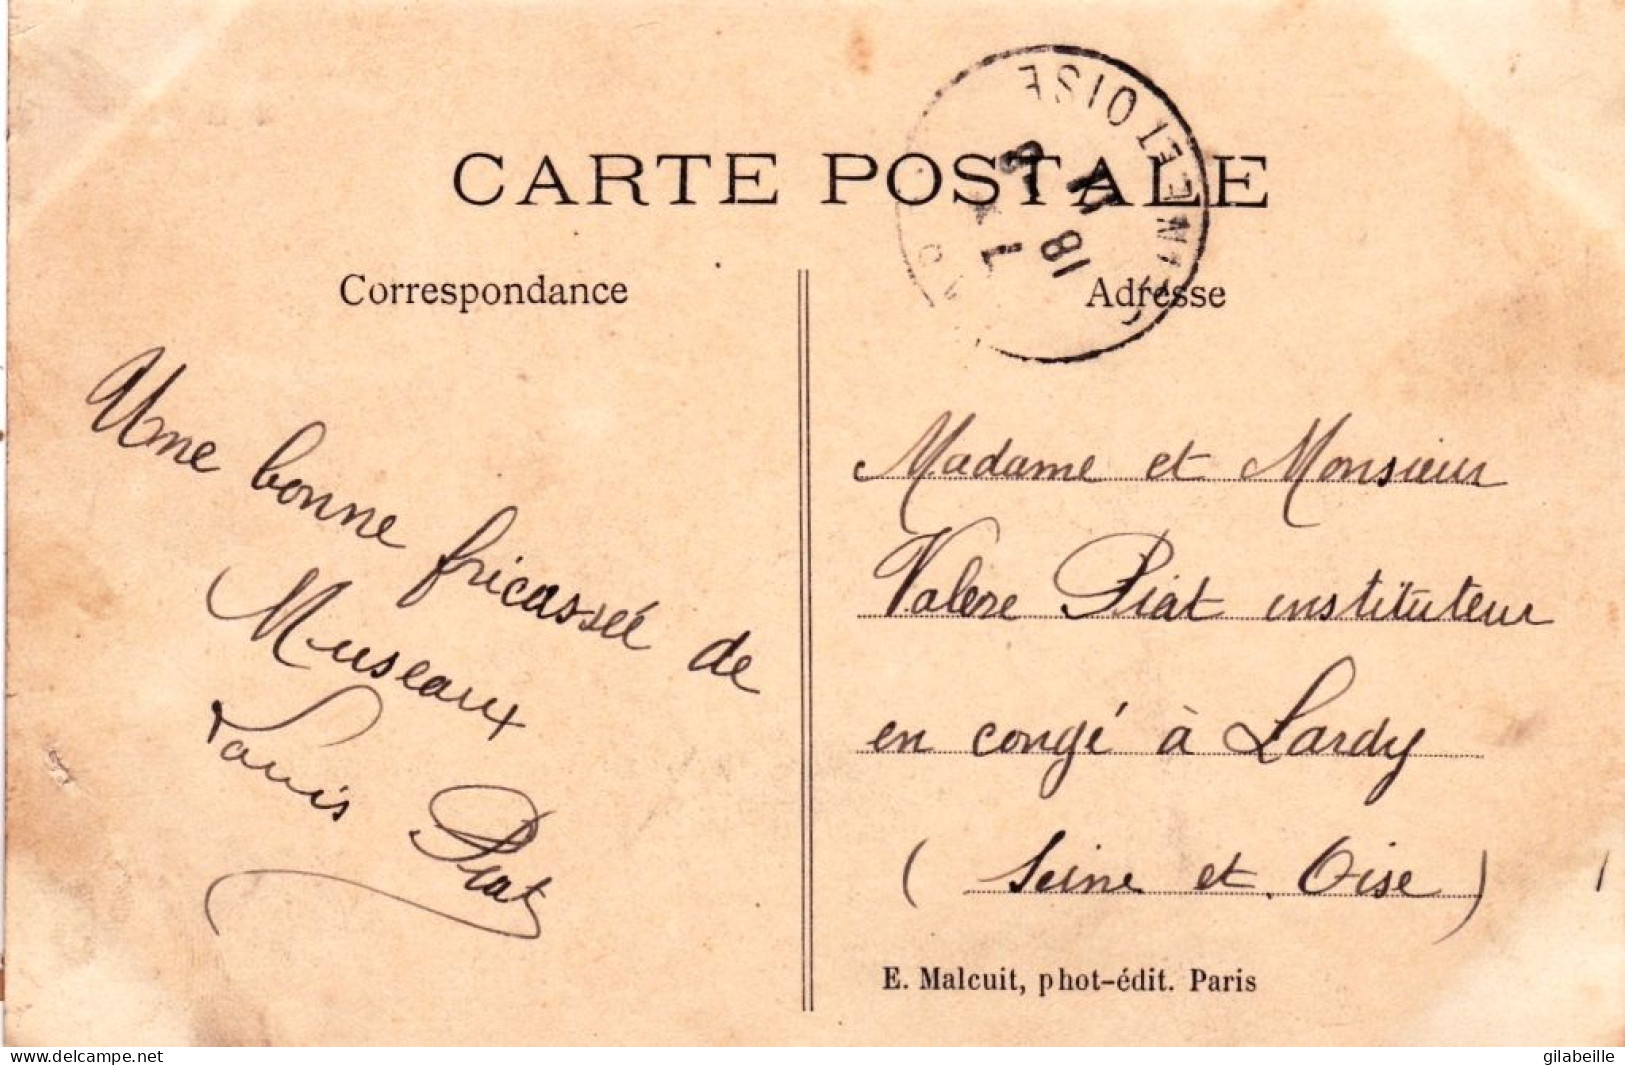 CARTE POSTALE
Correspondance
Adresse
SEINE ET OISE
18
Une bonne fricassée de
Museaux
Louis Piat
Madame et Monsieur
Valère Piat instituteur
en congé à Lardy
(Seine et Oise)
E. Malcuit, phot-édit. Paris
www.delcampe.net
gilabeille